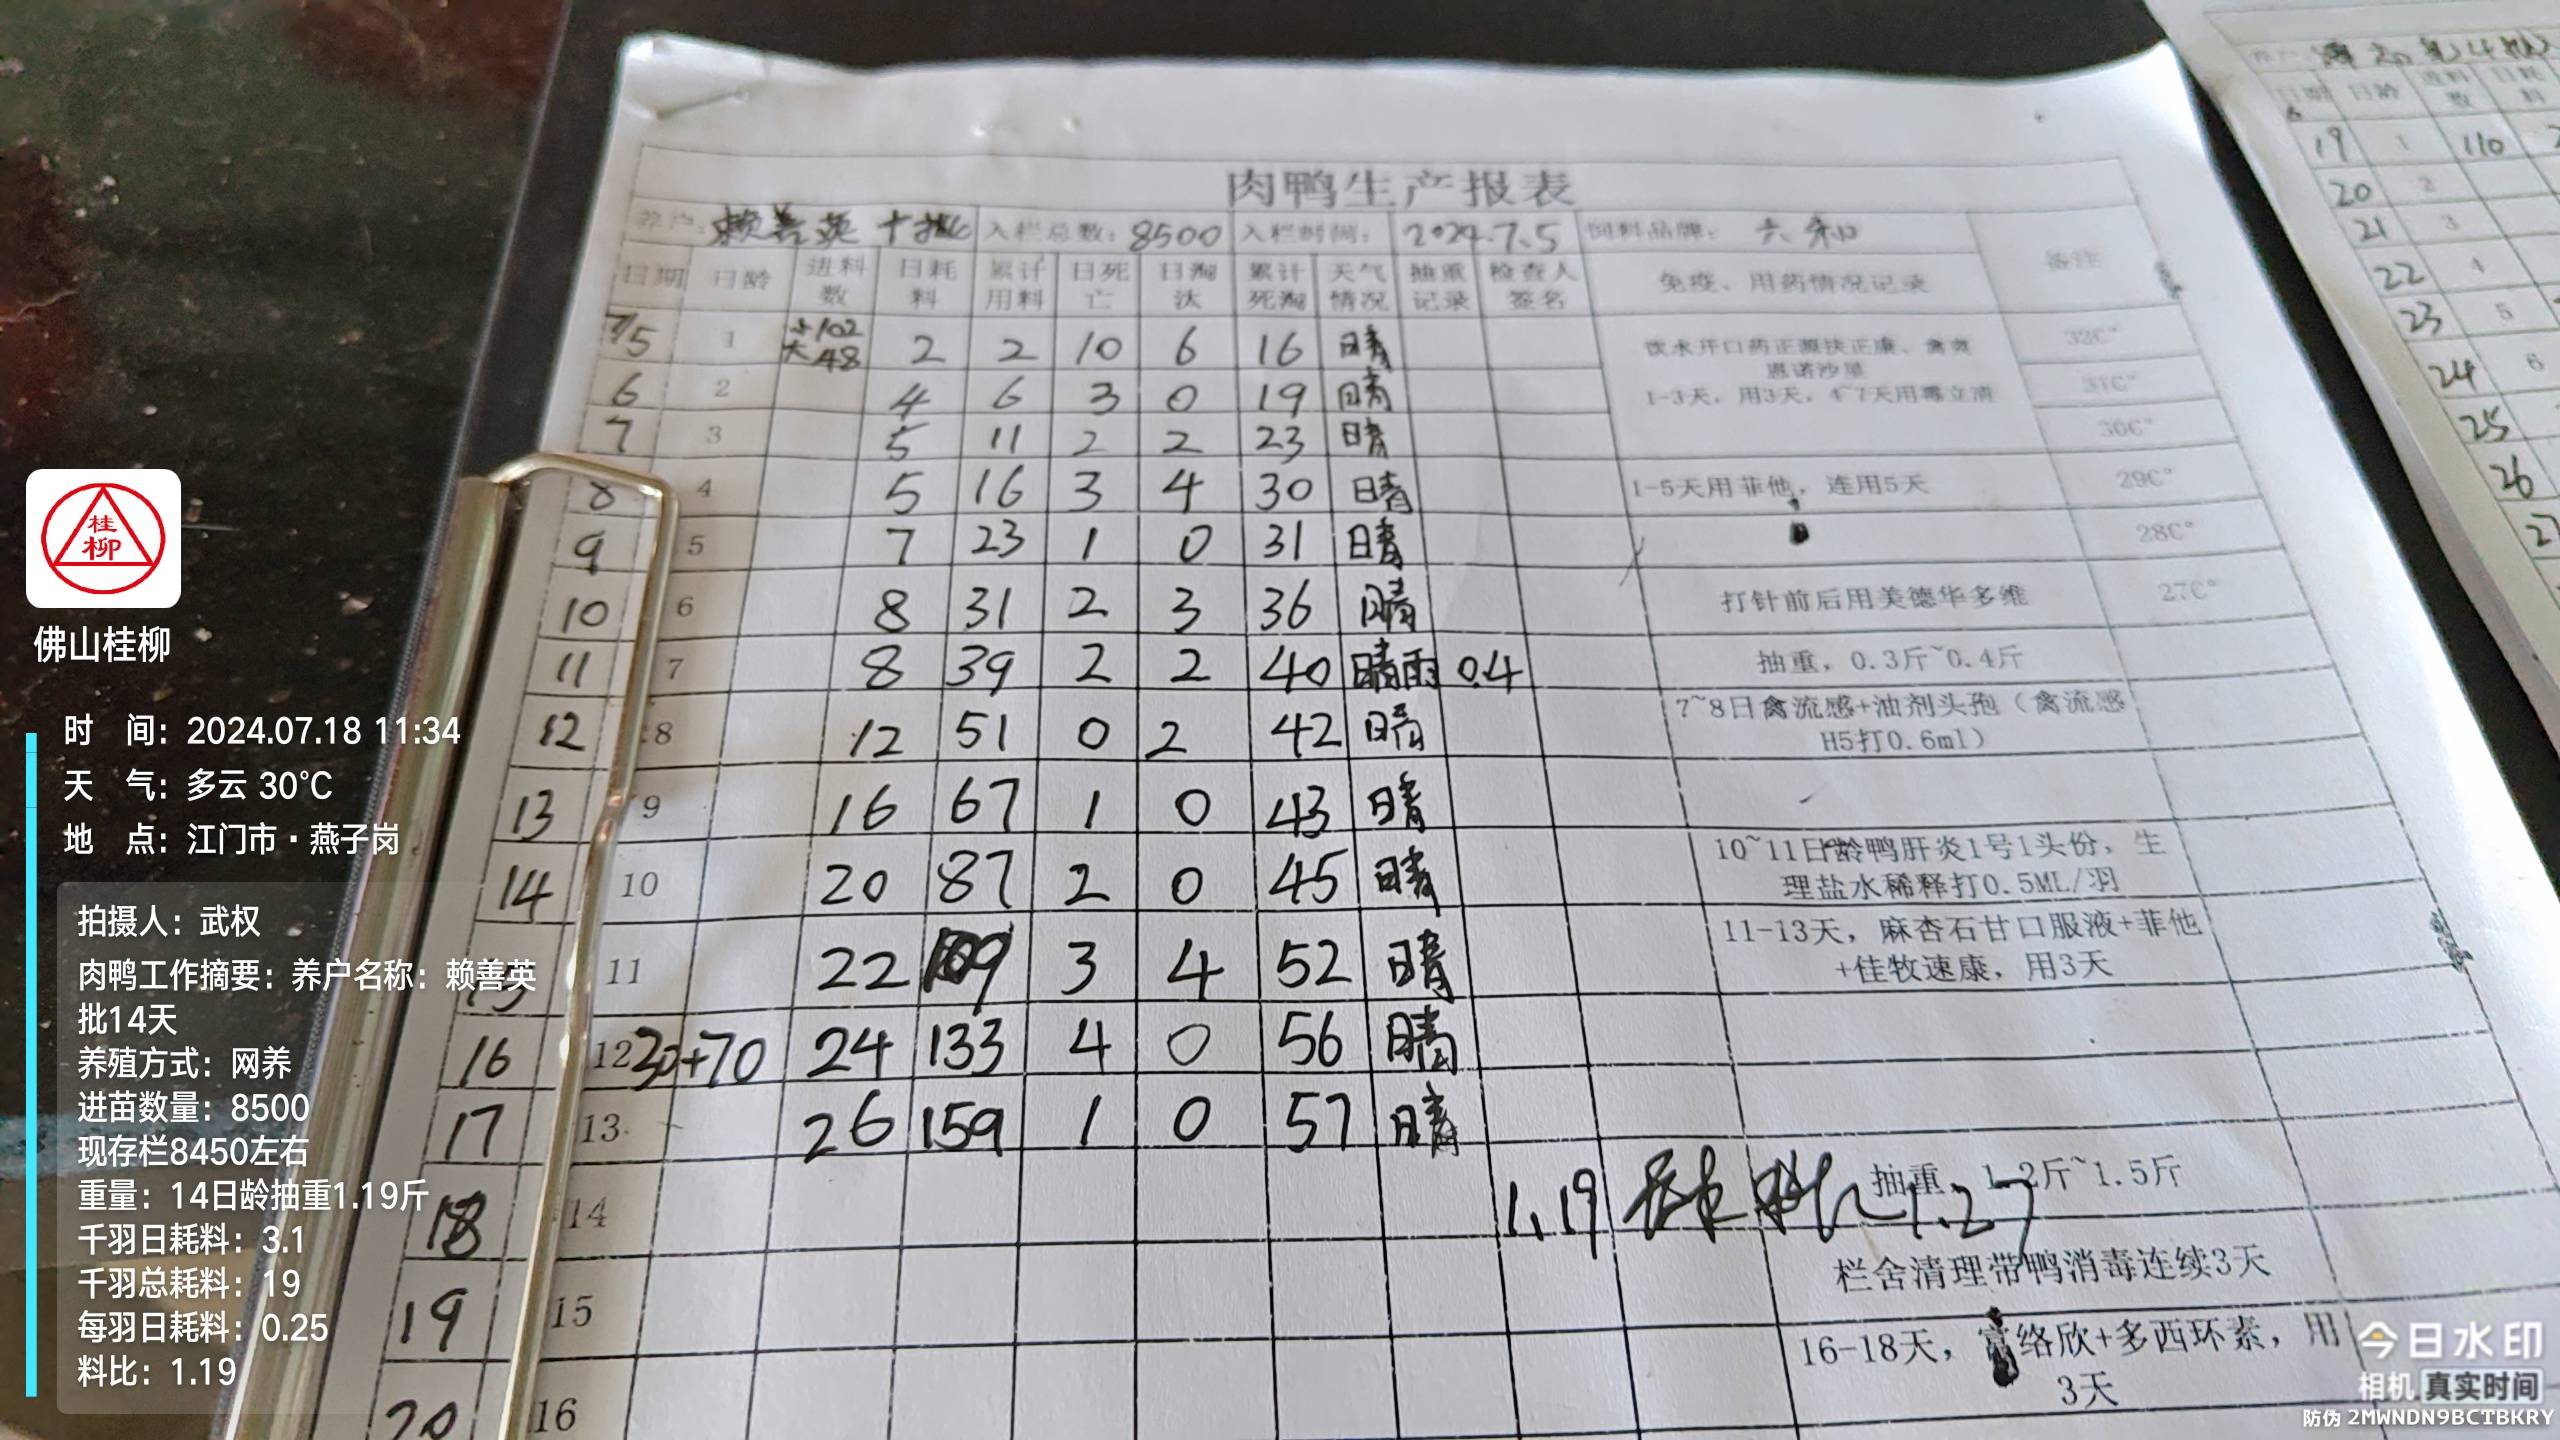 肉鸭生产报表
养户：赖善英 十批 入栏总数：8500 入栏时间：2024.7.5 饲料品牌：六和
日期 日龄 进料数 日耗料 累计用料 日死亡 日淘汰 累计死淘 天气情况 抽重记录 检查人签名 免疫、用药情况记录 备注
7/5 1 小102 大48 2 2 10 6 16 晴 饮水开口药正源扶正康、禽贡恩诺沙星 32C°
6 2 4 6 3 0 19 晴 1-3天，用3天，4~7天用霉立清 31C°
7 3 5 11 2 2 23 晴 30C°
8 4 5 16 3 4 30 晴 1-5天用菲他，连用5天 29C°
9 5 7 23 1 0 31 晴 28C°
10 6 8 31 2 3 36 晴 打针前后用美德华多维 27C°
11 7 8 39 2 2 40 晴雨 0.4 抽重，0.3斤~0.4斤
12 8 12 51 0 2 42 晴 7~8日禽流感+油剂头孢（禽流感
H5打0.6ml）
13 9 16 67 1 0 43 晴
14 10 20 87 2 0 45 晴 10~11日龄鸭肝炎1号1头份，生
理盐水稀释打0.5ML/羽
15 11 22 109 3 4 52 晴 11-13天，麻杏石甘口服液+菲他
+佳牧速康，用3天
16 12 30+70 24 133 4 0 56 晴
17 13 26 159 1 0 57 晴
18 14 1.19 抽重，1.2斤~1.5斤
1.27
19 15 栏舍清理带鸭消毒连续3天
20 16 16-18天，富络欣+多西环素，用
3天
养户
日期 日龄 进料数 日耗料
19 1 110
20 2
21 3
22 4
23 5
24 6
25
26
27
桂柳
佛山桂柳
时 间：2024.07.18 11:34
天 气：多云 30℃
地 点：江门市·燕子岗
拍摄人：武权
肉鸭工作摘要：养户名称：赖善英
批14天
养殖方式：网养
进苗数量：8500
现存栏8450左右
重量：14日龄抽重1.19斤
千羽日耗料：3.1
千羽总耗料：19
每羽日耗料：0.25
料比：1.19
今日水印
相机 真实时间
防伪 2MWNDN9BCTBKRY